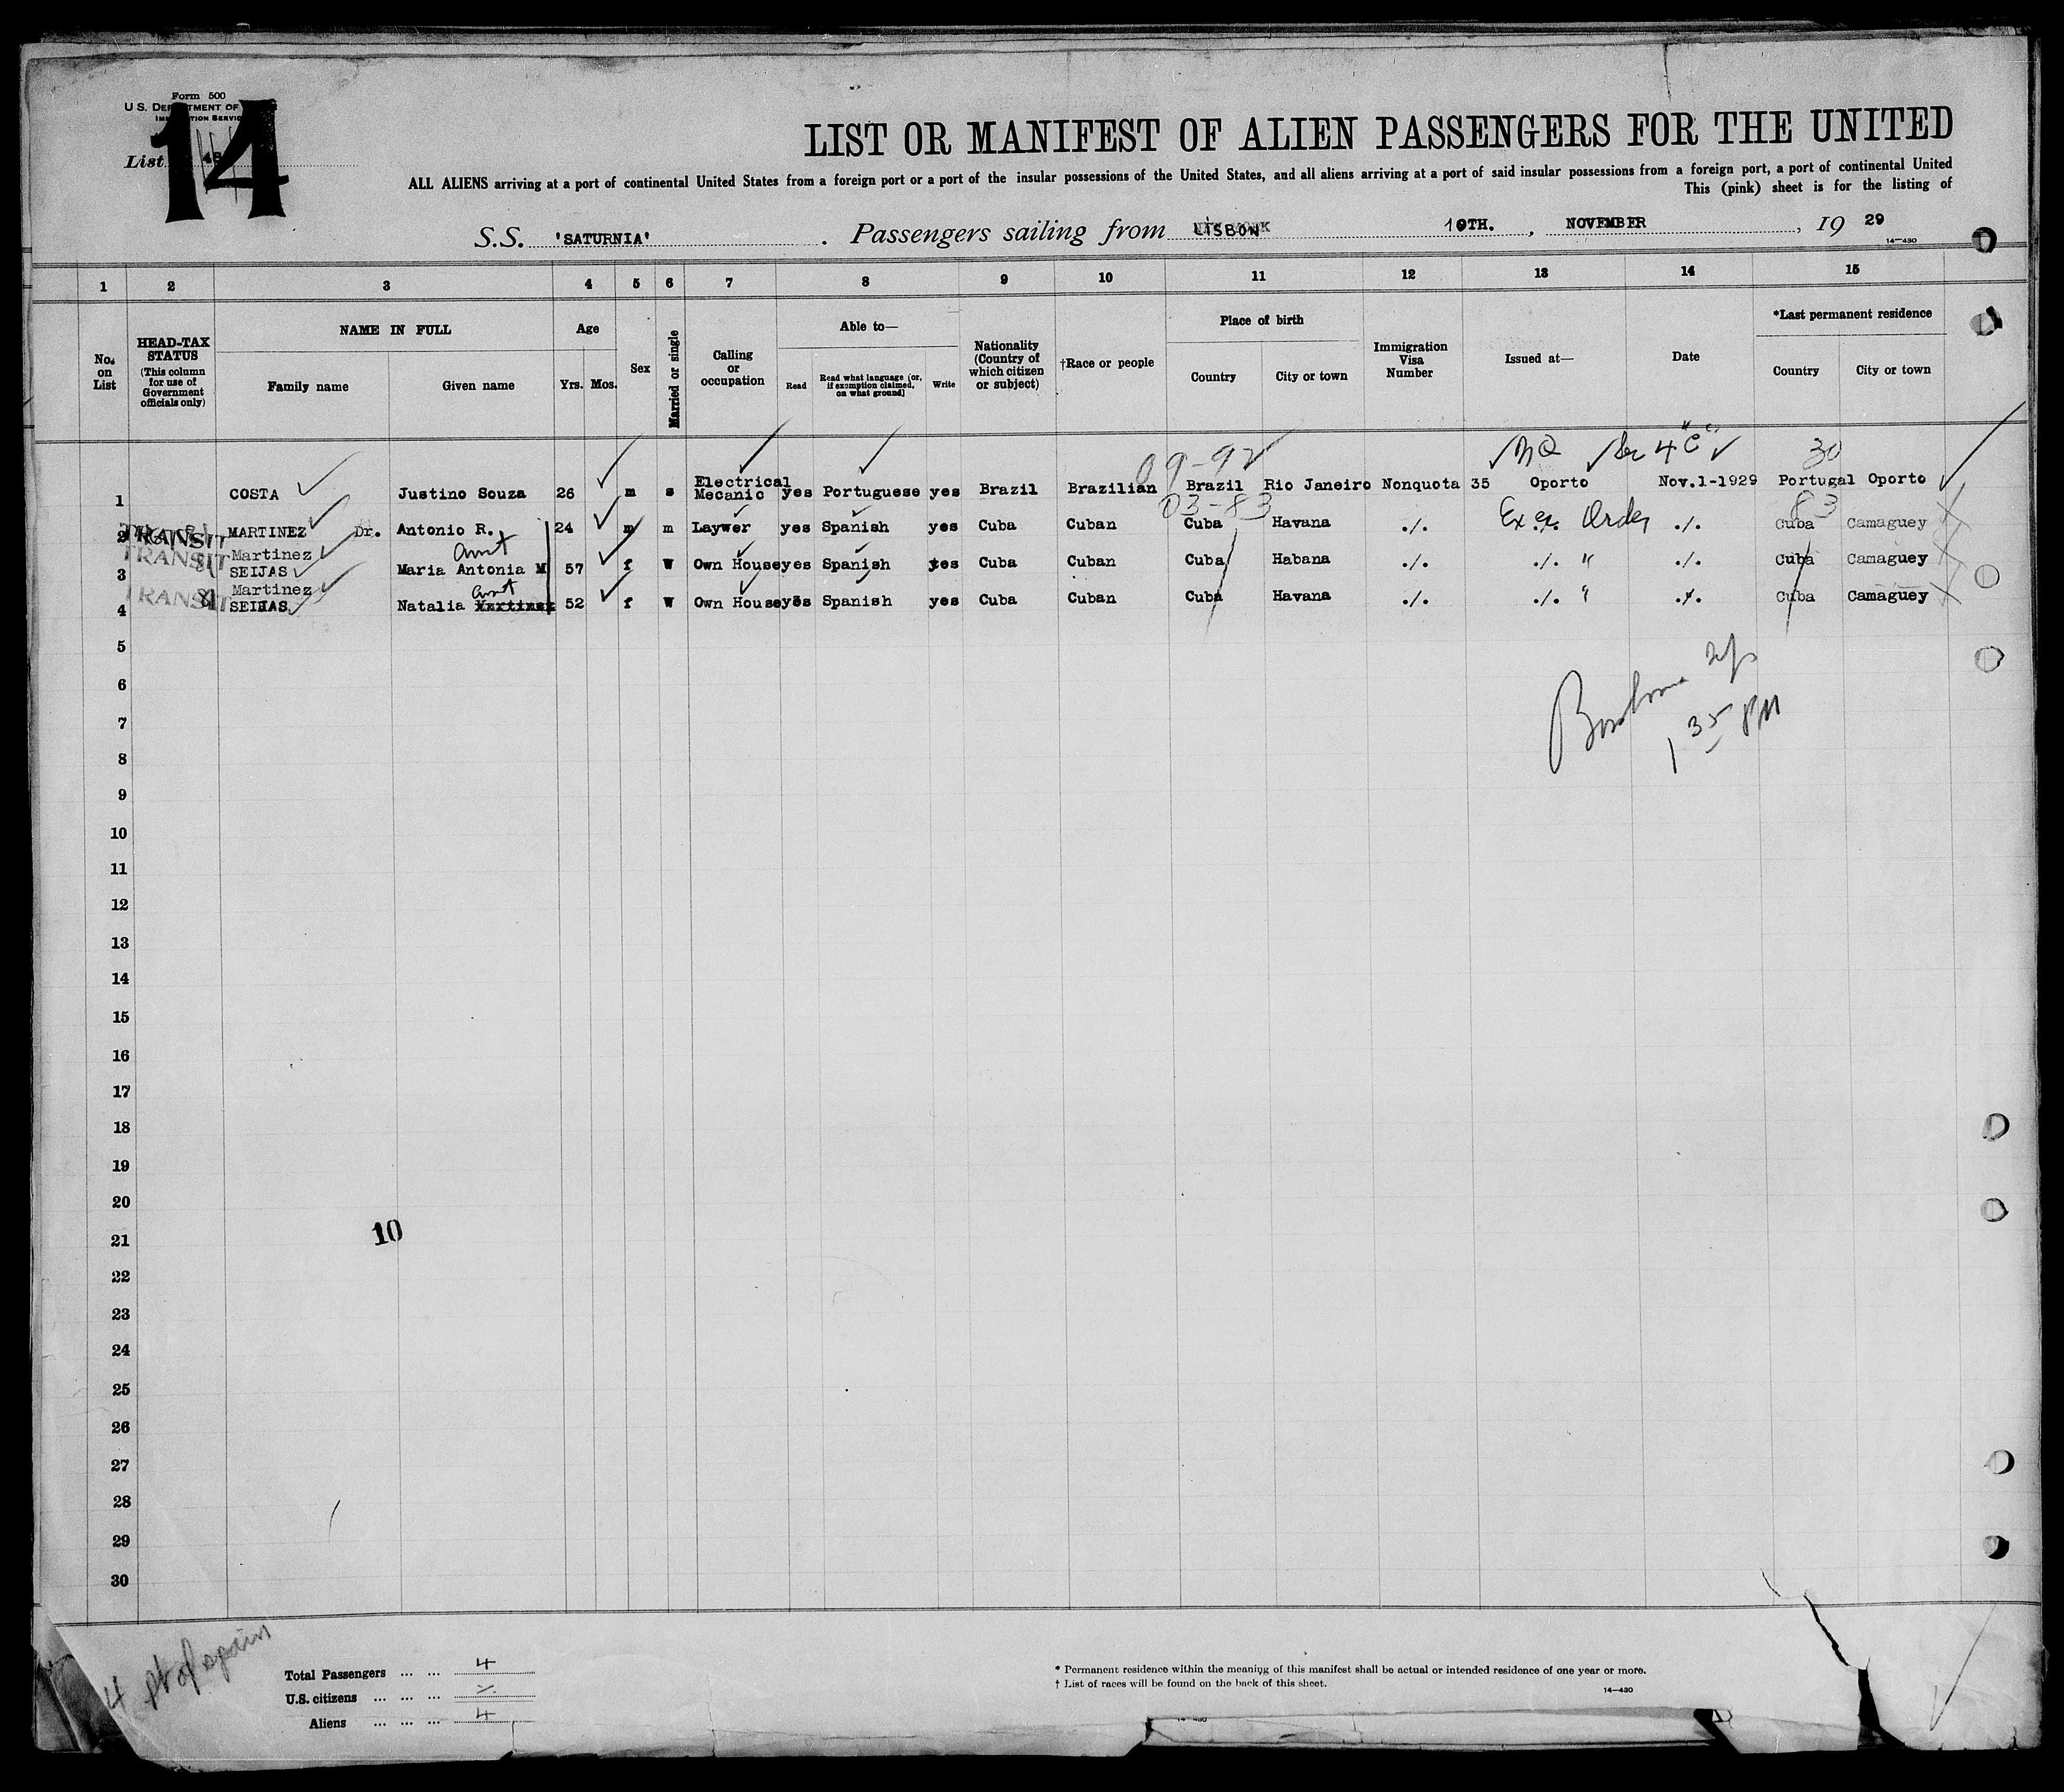 Form 500
U.S. DEPARTMENT OF
IMMIGRATION SERVICE
List 14
LIST OR MANIFEST OF ALIEN PASSENGERS FOR THE UNITED
ALL ALIENS arriving at a port of continental United States from a foreign port or a port of the insular possessions of the United States, and all aliens arriving at a port of said insular possessions from a foreign port, a port of continental United
This (pink) sheet is for the listing of
S.S. 'SATURNIA' . Passengers sailing from LISBON 10TH. , NOVEMBER , 19 29
14—430
1 2 3 4 5 6 7 8 9 10 11 12 13 14 15
No. on List
HEAD-TAX STATUS (This column for use of Government officials only)
NAME IN FULL
Family name Given name
Age
Yrs. Mos.
Sex
Married or single
Calling or occupation
Able to—
Read Read what language (or, if exemption claimed, on what ground) Write
Nationality (Country of which citizen or subject)
†Race or people
Place of birth
Country City or town
Immigration Visa Number
Issued at—
Date
*Last permanent residence
Country City or town
09-92 NQ Sec 4 "C" 30
1 COSTA Justino Souza 26 m s Electrical Mecanic yes Portuguese yes Brazil Brazilian Brazil Rio Janeiro Nonquota 35 Oporto Nov.1-1929 Portugal Oporto
03-83 83
2 TRANSIT MARTINEZ Dr. Antonio R. 24 m m Laywer yes Spanish yes Cuba Cuban Cuba Havana ./. Ex. Order ./. Cuba Camaguey
aunt
3 TRANSIT Martinez SEIJAS Maria Antonia M 57 f W Own House yes Spanish yes Cuba Cuban Cuba Habana ./. ./. " ./. Cuba Camaguey
aunt
4 TRANSIT Martinez SEIJAS Natalia Martinez 52 f W Own House yes Spanish yes Cuba Cuban Cuba Havana ./. ./. " ./. Cuba Camaguey
5
6
7
1 35 PM
8
9
10
11
12
13
14
15
16
17
18
19
20
10
21
22
23
24
25
26
27
28
29
30
4 pt of spain
Total Passengers ... ... 4
U.S. citizens ... ... ...
Aliens ... ... ... 4
* Permanent residence within the meaning of this manifest shall be actual or intended residence of one year or more.
† List of races will be found on the back of this sheet.
14—430